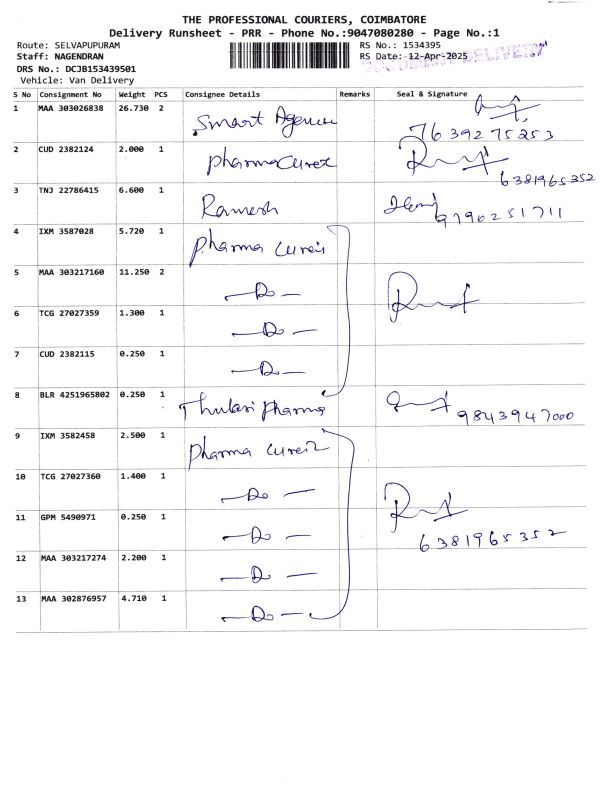 THE PROFESSIONAL COURIERS, COIMBATORE
Delivery Runsheet - PRR - Phone No.:9047080280 - Page No.:1
Route: SELVAPUPURAM RS No.: 1534395
Staff: NAGENDRAN RS Date: 12-Apr-2025 DELIVERY
DRS No.: DCJB153439501
Vehicle: Van Delivery
S No Consignment No Weight PCS Consignee Details Remarks Seal & Signature
1 MAA 303026838 26.730 2 Smart Agencies 7639275253
2 CUD 2382124 2.000 1 pharmacurez 6381965352
3 TNJ 22786415 6.600 1 Ramesh 9796251711
4 IXM 3587028 5.720 1 pharma cureis
5 MAA 303217160 11.250 2 —Do—
6 TCG 27027359 1.300 1 —Do—
7 CUD 2382115 0.250 1 —Do—
8 BLR 4251965802 0.250 1 Thulasi pharma 9843947000
9 IXM 3582458 2.500 1 pharma cureiz
10 TCG 27027360 1.400 1 —Do—
11 GPM 5490971 0.250 1 —Do— 6381965352
12 MAA 303217274 2.200 1 —Do—
13 MAA 302876957 4.710 1 —Do—